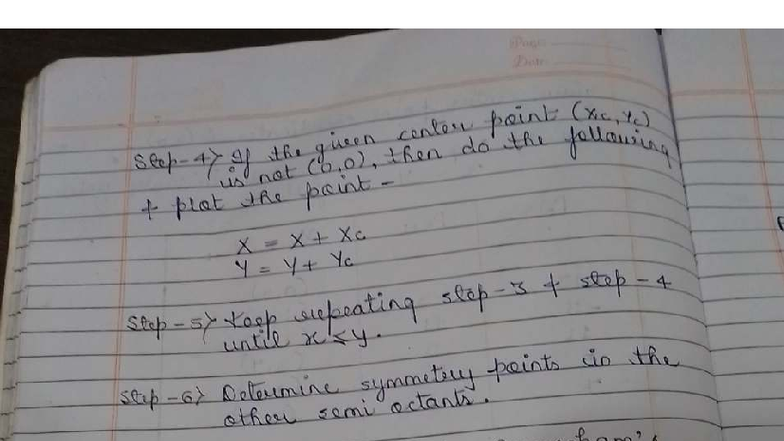 Page
Date
Step-4> If the given center point (xc, yc)
is not (0,0), then do the following
+ plot the point -
X = X + Xc
Y = Y + Yc
Step-5> Keep repeating step-3 + step-4
until x ≤ y.
Step-6> Determine symmetery points in the
other semi octants.